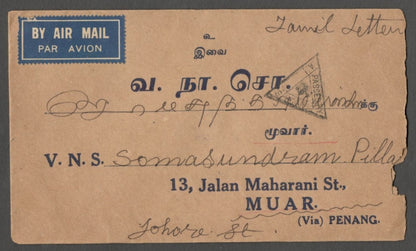 BY AIR MAIL
PAR AVION
Tamil Letter
உ
இவை
வ. நா. சொ.
க்கு
மூவார்.
V. N. S. Somasundram Pillai
13, Jalan Maharani St.,
MUAR.
(Via) PENANG.
Johore St